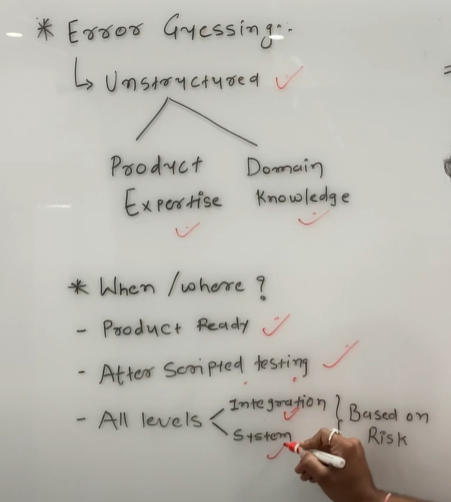 * Error Guessing:-
↳ Unstructured ✓
Product Expertise ✓
Domain Knowledge ✓
* When / where ?
- Product Ready ✓
- After Scripted testing ✓
- All levels < Integration ✓
System ✓
} Based on Risk